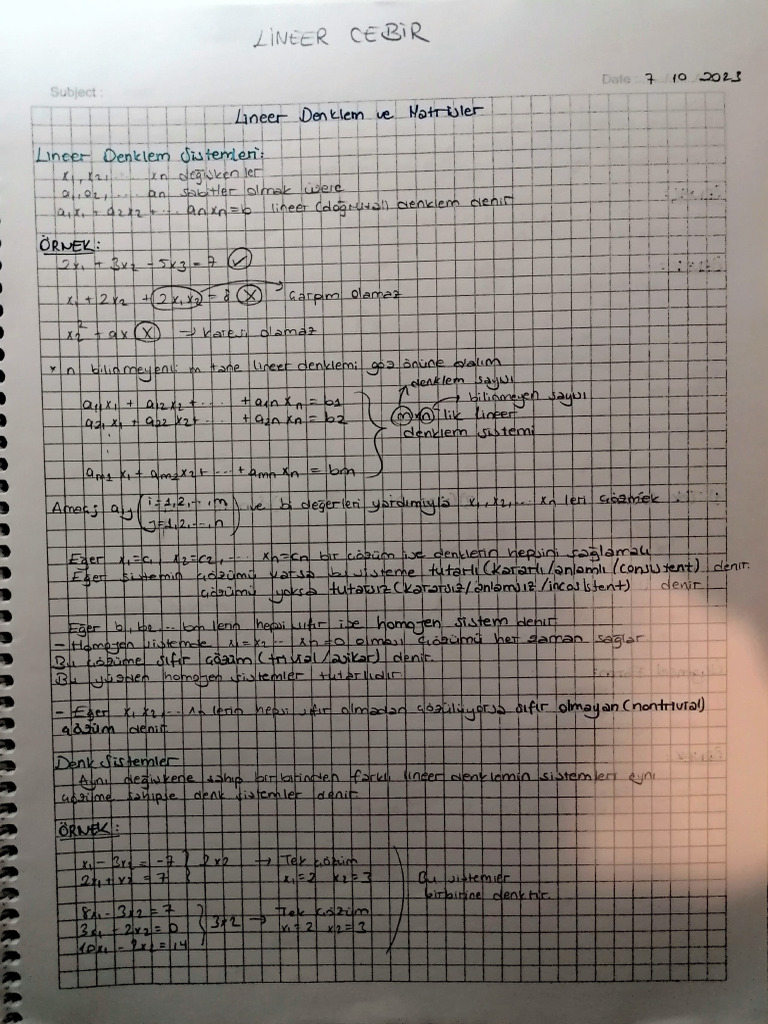 LİNEER CEBİR
Subject :
Date : 7 10 2023
Lineer Denklem ve Matrisler
Lineer Denklem Sistemleri:
x₁, x₂, ... xn değişkenler
a₁, a₂, ... an sabitler olmak üzere
a₁x₁ + a₂x₂ + ... anxn = b lineer (doğrusal) denklem denir
ÖRNEK:
2x₁ + 3x₂ - 5x₃ = 7 ✓
x₁ + 2x₂ + 2x₁x₂ = 8 X → Çarpım olamaz
x₂² + ax X → karesi olamaz
* n bilinmeyenli m tane lineer denklemi göz önüne alalım
denklem sayısı
a₁₁x₁ + a₁₂x₂ + ... + a₁nxn = b₁ → bilinmeyen sayısı
a₂₁x₁ + a₂₂x₂ + ... + a₂nxn = b₂ m x n lik lineer
denklem sistemi
am₁x₁ + am₂x₂ + ... + amnxn = bm
Amaç aij (i=1,2,...,m j=1,2,...,n) ve bi değerleri yardımıyla x₁, x₂, ... xn leri çözmek
Eğer x₁=c₁ x₂=c₂, ... xn=cn bir çözüm ise denklerin hepsini sağlamalı
Eğer sistemin çözümü varsa bu sisteme tutarlı (kararlı/anlamlı/consistent) denir.
çözümü yoksa tutarsız (kararsız/anlamsız/incosistent) denir
Eğer b₁, b₂ ... bm lerin hepsi sıfır ise homojen sistem denir
- Homojen sistemde x₁=x₂ ... xn=0 olması çözümü her zaman sağlar
Bu çözüme sıfır çözüm (trivial/aşikar) denir.
Bu yüzden homojen sistemler tutarlıdır
- Eğer x₁ x₂, ... xn lerin hepsi sıfır olmadan çözülüyorsa sıfır olmayan (nontrivial)
çözüm denir
Denk Sistemler
Aynı değişkene sahip birbirinden farklı lineer denklemin sistemleri aynı
çözüme sahipse denk sistemler denir
ÖRNEK:
x₁ - 3x₂ = -7 } 2x2 → Tek çözüm
2x₁ + x₂ = 7 x₁=2 x₂=3
Bu sistemler
birbirine denktir.
8x₁ - 3x₂ = 7 } 3x2 → Tek çözüm
3x₁ - 2x₂ = 0 x₁=2 x₂=3
10x₁ - 2x₂ = 14